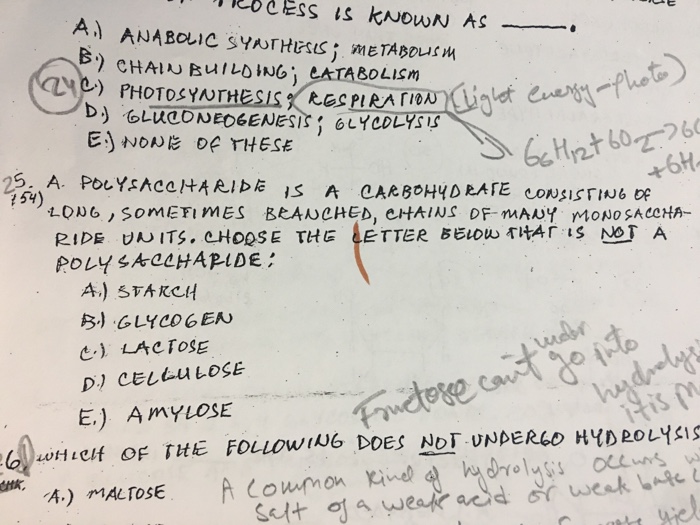 PROCESS IS KNOWN AS ______.
A.) ANABOLIC SYNTHESIS; METABOLISM
B.) CHAIN BUILDING; CATABOLISM
24 C.) PHOTOSYNTHESIS; RESPIRATION (Light energy-photo)
D.) GLUCONEOGENESIS; GLYCOLYSIS
E.) NONE OF THESE
25. A. POLYSACCHARIDE IS A CARBOHYDRATE CONSISTING OF
LONG, SOMETIMES BRANCHED, CHAINS OF MANY MONOSACCHA-
RIDE UNITS. CHOOSE THE LETTER BELOW THAT IS NOT A
POLYSACCHARIDE:
A.) STARCH
B.) GLYCOGEN
C.) LACTOSE
D.) CELLULOSE
E.) AMYLOSE
Fructose can't go into
WHICH OF THE FOLLOWING DOES NOT UNDERGO HYDROLYSIS
A.) MALTOSE
A common kind of hydrolysis occurs
salt of a weak acid or weak base